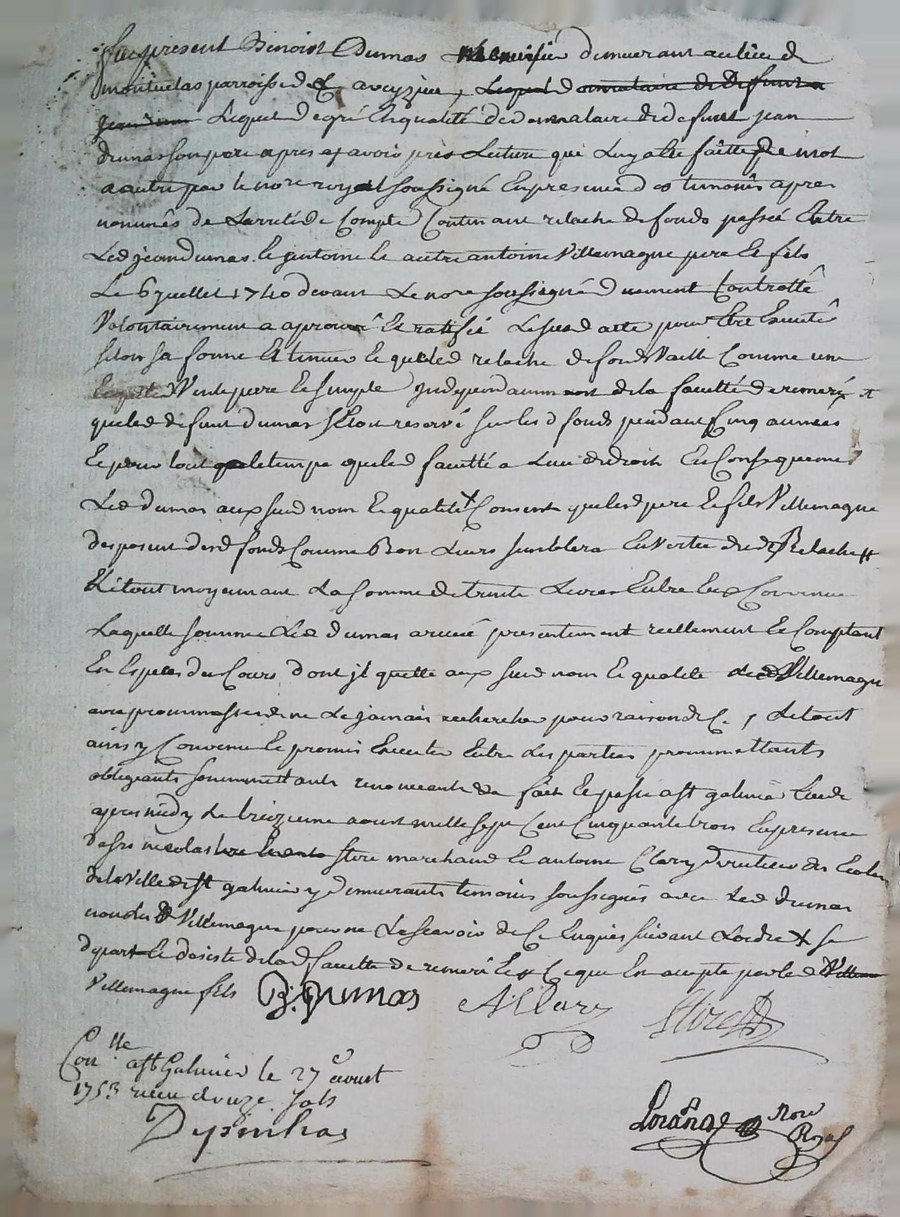 fut present Benoist Dumas demeurant au lieu de
parroisse d aveyzieu, Lequel donnataire de deffunt
Lequel de gré En qualité de donnataire de deffunt jean
dumas son pere apres avoir pris Lecture qui Luy a été faitte de mot
a autre par le nore royal soussigné En presence des temoins apres
nommés de Larreté de Compte Contenant relache de fonds passée Entre
Led jean dumas le antoine le autre antoine Villemagne pere Et fils
Le 6 juillet 1740 devant Le nore soussigné duement Controllé
Volontairement a aprouvé Et ratifié Le susd acte pour Etre Executé
selon sa forme Et teneur Et que led relache de fonds Vaille Comme une
Vente pure Et simple Independamment de la faculté de remeré
que led deffunt Dumas setoit reservé sur les d fonds pendant Cinq années
Et pour tout le temps que lad faculté a Lieu de droit En Consequence
Led dumas aux susd nom Et qualité Consent que led pere Et fils Villemagne
desd fonds Comme Bon Leurs semblera En Vertu dud Relache
Et le tout moyennant La somme de trente Livres Entre Eux Convenue
Laquelle somme Led dumas a receu presentement reellement Et Comptant
En Especes du Cours dont il quitte aux susd nom Et qualité Led Villemagne
avec prommesse de ne Le jamais rechercher pour raison de Ce, Le tout
ainsy Convenu Et promis Executer Entre Les parties prommettants
obligeants sommettants renonceants &a fait Et passé a st galmier
apres midy Le treizieme aoust mille sept Cent Cinquante trois En presence
de sr nicolas marchand Et antoine Clary directeur des Ecoles
de la Ville de st galmier y demeurants temoins soussignés avec Led dumas
non led Villemagne pour ne Le scavoir de Ce Enquis suivant Lordre + se
depart Et desiste de lad faculté de remeré Et Ce que En accepte par led
Villemagne fils B. Dumas
Conlle a st Galmier le 27 aoust
1753 receu douze sols
Depinhac
Lorange Nore
Royal